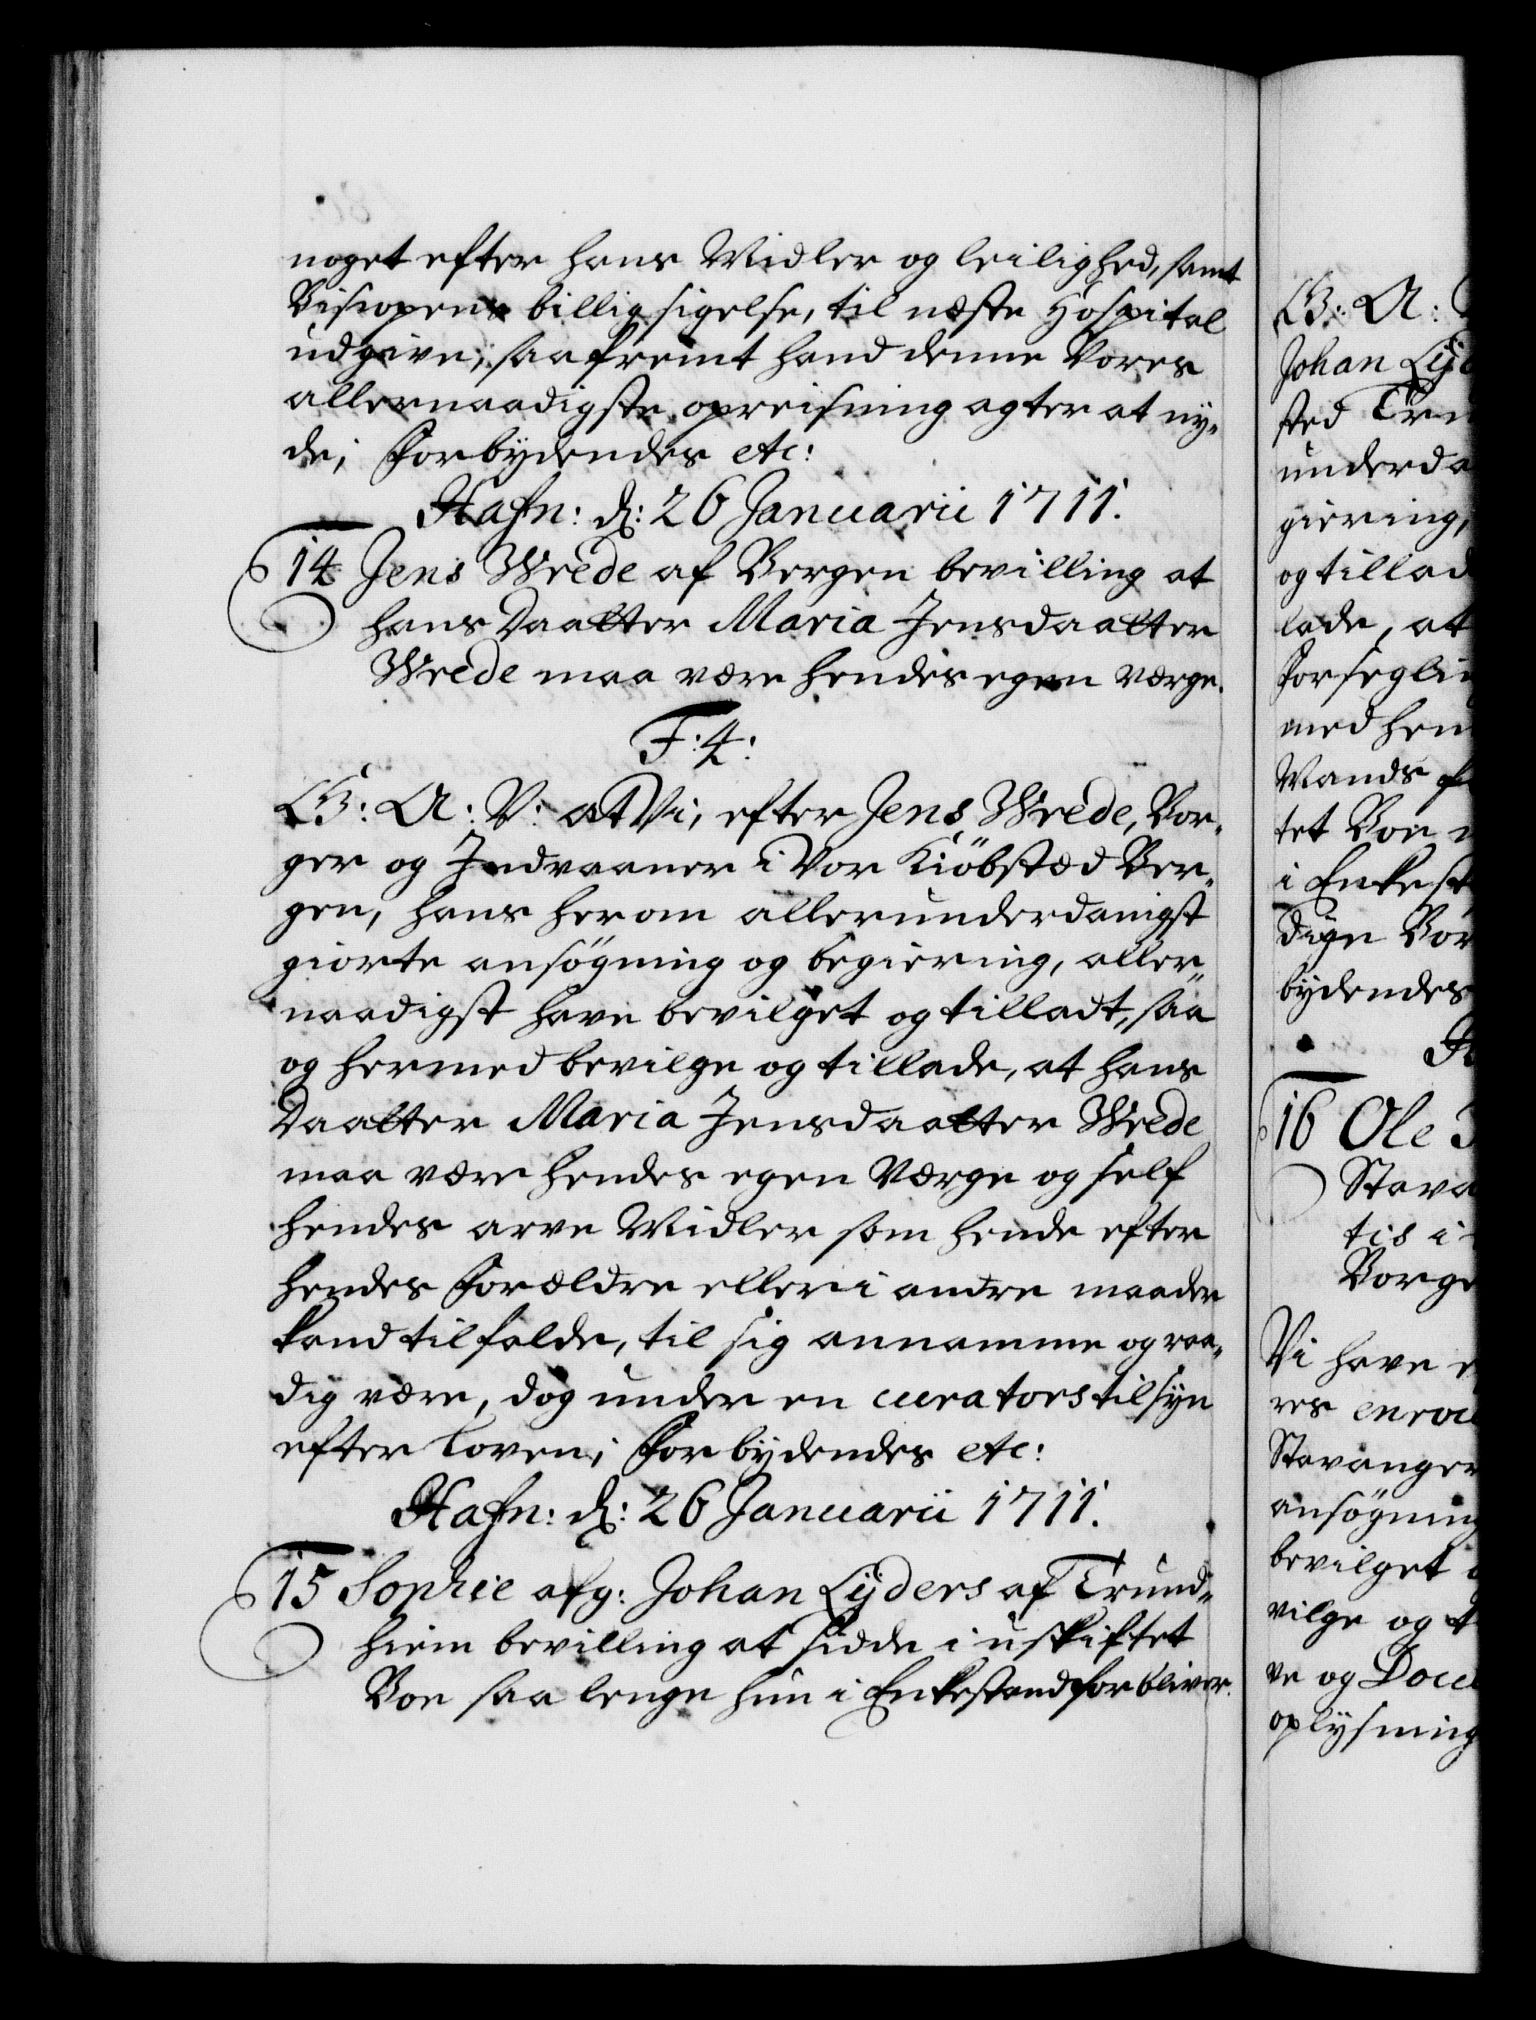 noget efter hans Midler og leilighed, samt
Biscopens billig sigelse, til næste Hospital
udgive, saafremt hand denne Vores
allernaadigste opreisning agter at ny„
de; Forbydendes etc:
Hafn: d: 26 Januarii 1711.
14 Jens Wrede af Bergen bevilling at
hans Daatter Maria Jensdaatter
Wrede maa være hendes egen værge.
F:4:
G: A: V: at Vi, efter Jens Wrede, Bor„
ger og Indvaaner i Vor Kiöbstæd Ber„
gen, hans herom allerunderdanigst
giorte ansögning og begiering, aller„
naadigst have bevilget og tilladt, saa
og hermed bevilge og tillade, at hans
Daatter Maria Jensdaatter Wrede
maa være hendes egen Værge og self
hendes arve Midler som hende efter
hendes Forældre eller i andre maader
kand tilfalde, til sig annamme og raa„
dig være, dog under en curators tilsyn
efter loven; Forbydendes etc:
Hafn: d: 26 Januarii 1711.
15 Sophie afg: Johan Lyders af Trund„
hiem bevilling at sidde i uskiftet
Boe saa lenge hun i Enkestand forbliver.
G: A:
Johan Lyd
sted Tru
underda
giering,
og tillad
lade, at
Forseglin
med hen
Mands
tet Boe
i Enkest
dige Vor
bydendes
16 Ole
Stava
tis i
Borge
Vi have
res enrou
Stavanger
ansögning
bevilget
vilge og t
ve og Docu
oplysning